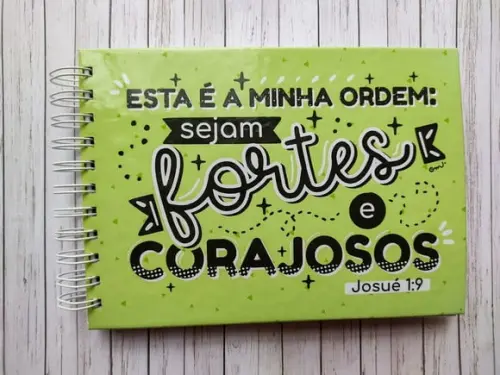 ESTA É A MINHA ORDEM:
sejam
fortes
e
CORAJOSOS
Josué 1:9